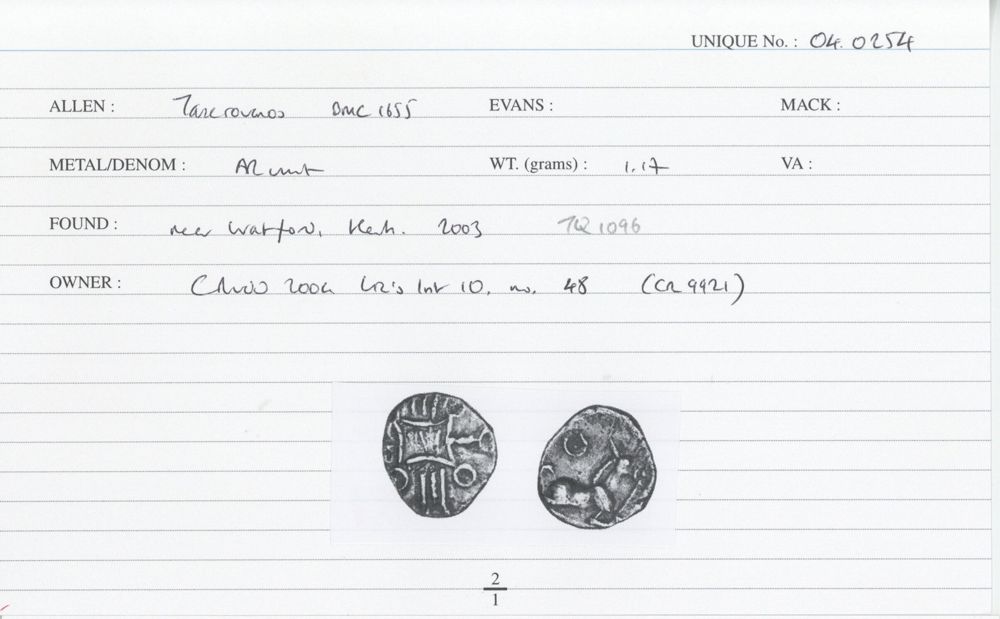 UNIQUE No. : 04.0254
ALLEN : Tasciovanos BMC 1655 EVANS : MACK :
METAL/DENOM : AR unit WT. (grams) : 1.17 VA :
FOUND : near Watford, Herts. 2003 TQ 1096
OWNER : 10, no. 48 (CR 9921)
2
1